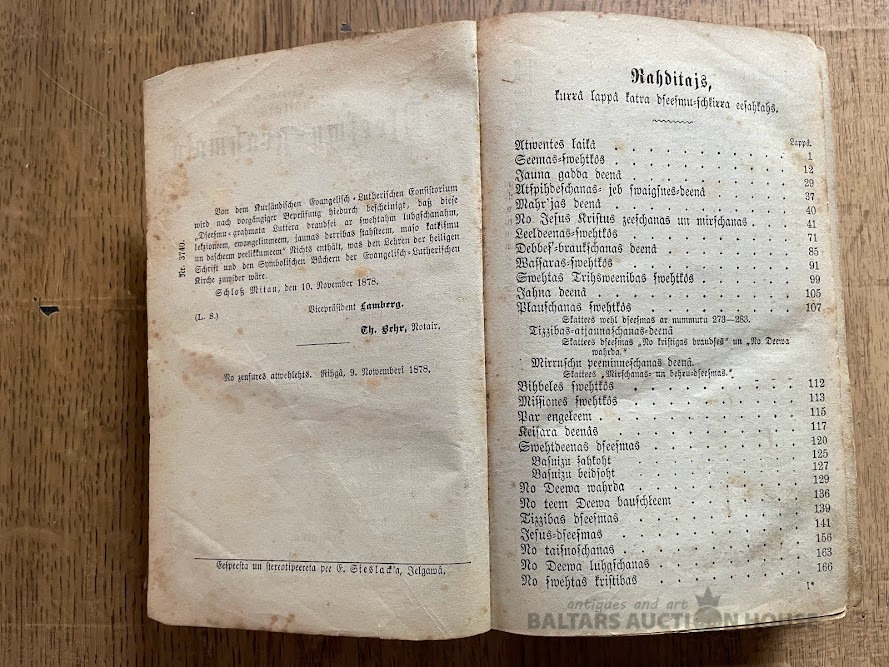 Nr. 3740.
Von dem Kurländischen Evangelisch-Lutherischen Consistorium
wird nach vorgängiger Beprüfung hiedurch bescheinigt, daß diese
„Dseesmu-grahmata Luttera draudsei ar swehtahm luhgschanahm,
lekzioneem, ewangelinmeem, jaunas derribas stahsteem, maso katkismu
un dascheem peelikkumeem“ Nichts enthält, was den Lehren der heiligen
Schrift und den Symbolischen Büchern der Evangelisch-Lutherischen
Kirche zuwider wäre.
Schloß Mitau, den 10. November 1878.
(L. S.)
Vicepräsident Lamberg.
Th. Behr, Notair.
No zensures atwehlehts. Rihgâ, 9. Novemberi 1878.
Gespeesta un stereotipeereta pee E. Sieslack'a, Jelgawâ.
Rahditajs,
kurrâ lappâ katra dseesmu-schkirra eesahkahs.
Lappâ.
Atwentes laikâ 1
Seemas-swehtkôs 12
Jauna gadda deenâ 29
Atspihdeschanas- jeb swaigsnes-deenâ 37
Mahr'jas deenâ 40
No Jesus Kristus zeeschanas un mirschanas 41
Leeldeenas-swehtkôs 71
Debbes'-braukschanas deenâ 85
Wassaras-swehtkôs 91
Swehtas Trihsweenibas swehtkôs 99
Jahna deenâ 105
Plauschanas swehtkôs 107
Skattees wehl dseesmas ar nummuru 273—283.
Tizzibas-atjaunaschanas-deenâ
Skattees dseesmas „No kristigas draudses“ un „No Deewa
wahrda.“
Mirruschu peeminneschanas deenâ.
Skattees „Mirschanas- un behru-dseesmas.“
Bihbeles swehtkôs 112
Missiones swehtkôs 113
Par engeleem 115
Keisara deenâs 117
Swehtdeenas dseesmas 120
Basnizu sahkoht 125
Basnizu beidsoht 127
No Deewa wahrda 129
No teem Deewa bauschleem 136
Tizzibas dseesmas 139
Jesus-dseesmas 141
No taisnoschanas 156
No Deewa luhgschanas 163
No swehtas kristibas 166
1*
antiques and art
BALTARS AUCTION HOUSE